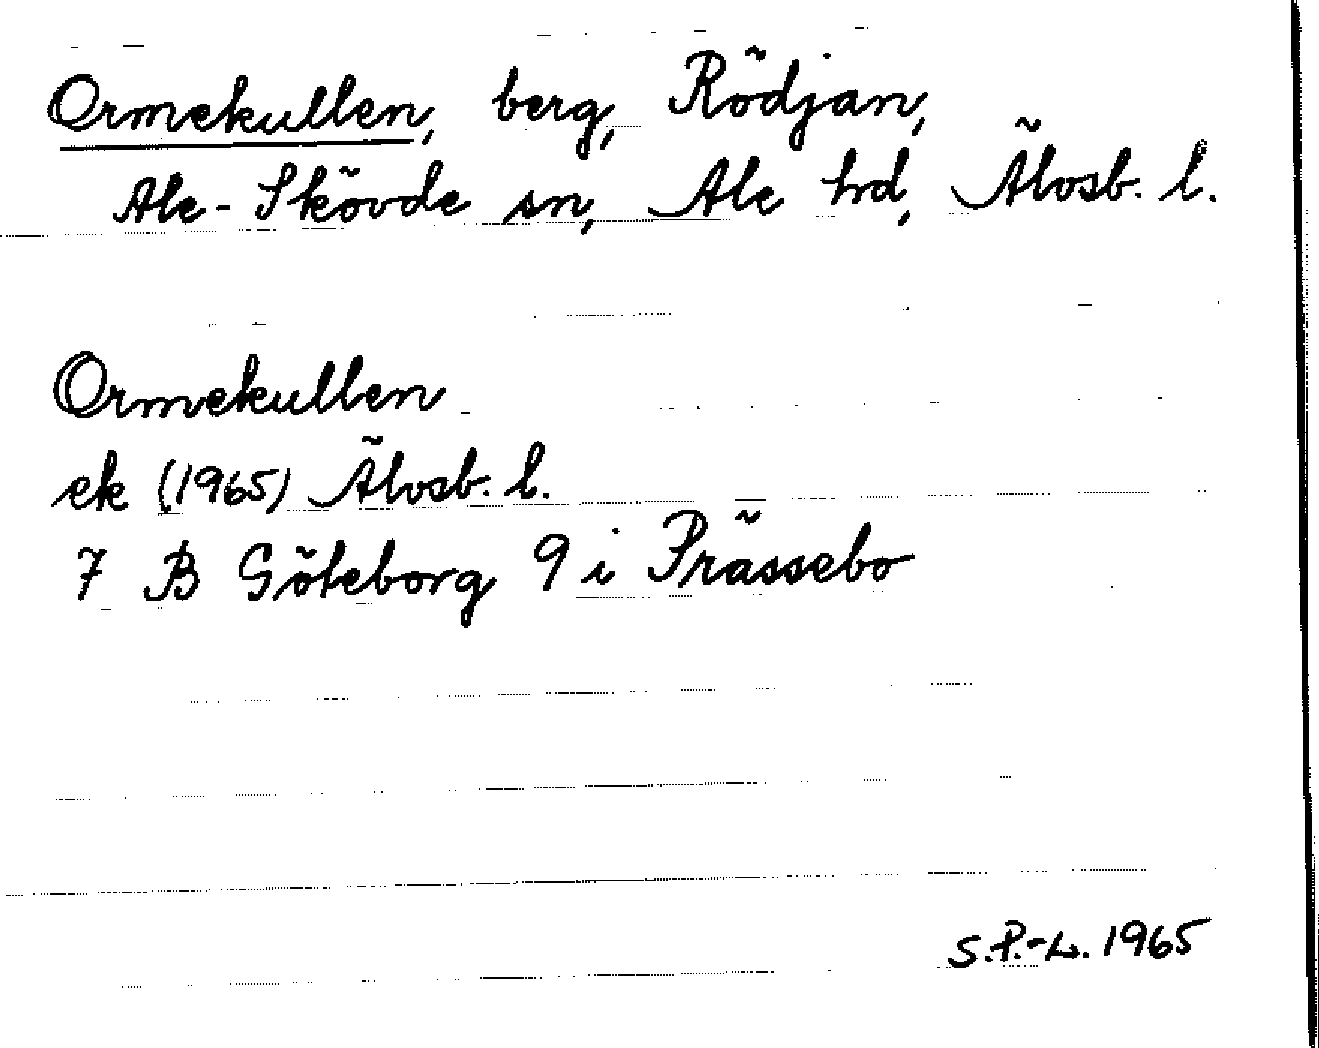 Ormekullen, berg, Rödjan,
Ale-Skövde sn, Ale hd, Älvsb. l.
Ormekullen
ek (1965) Älvsb. l.
7 B Göteborg 9 i Prässebo
S.P.-L. 1965